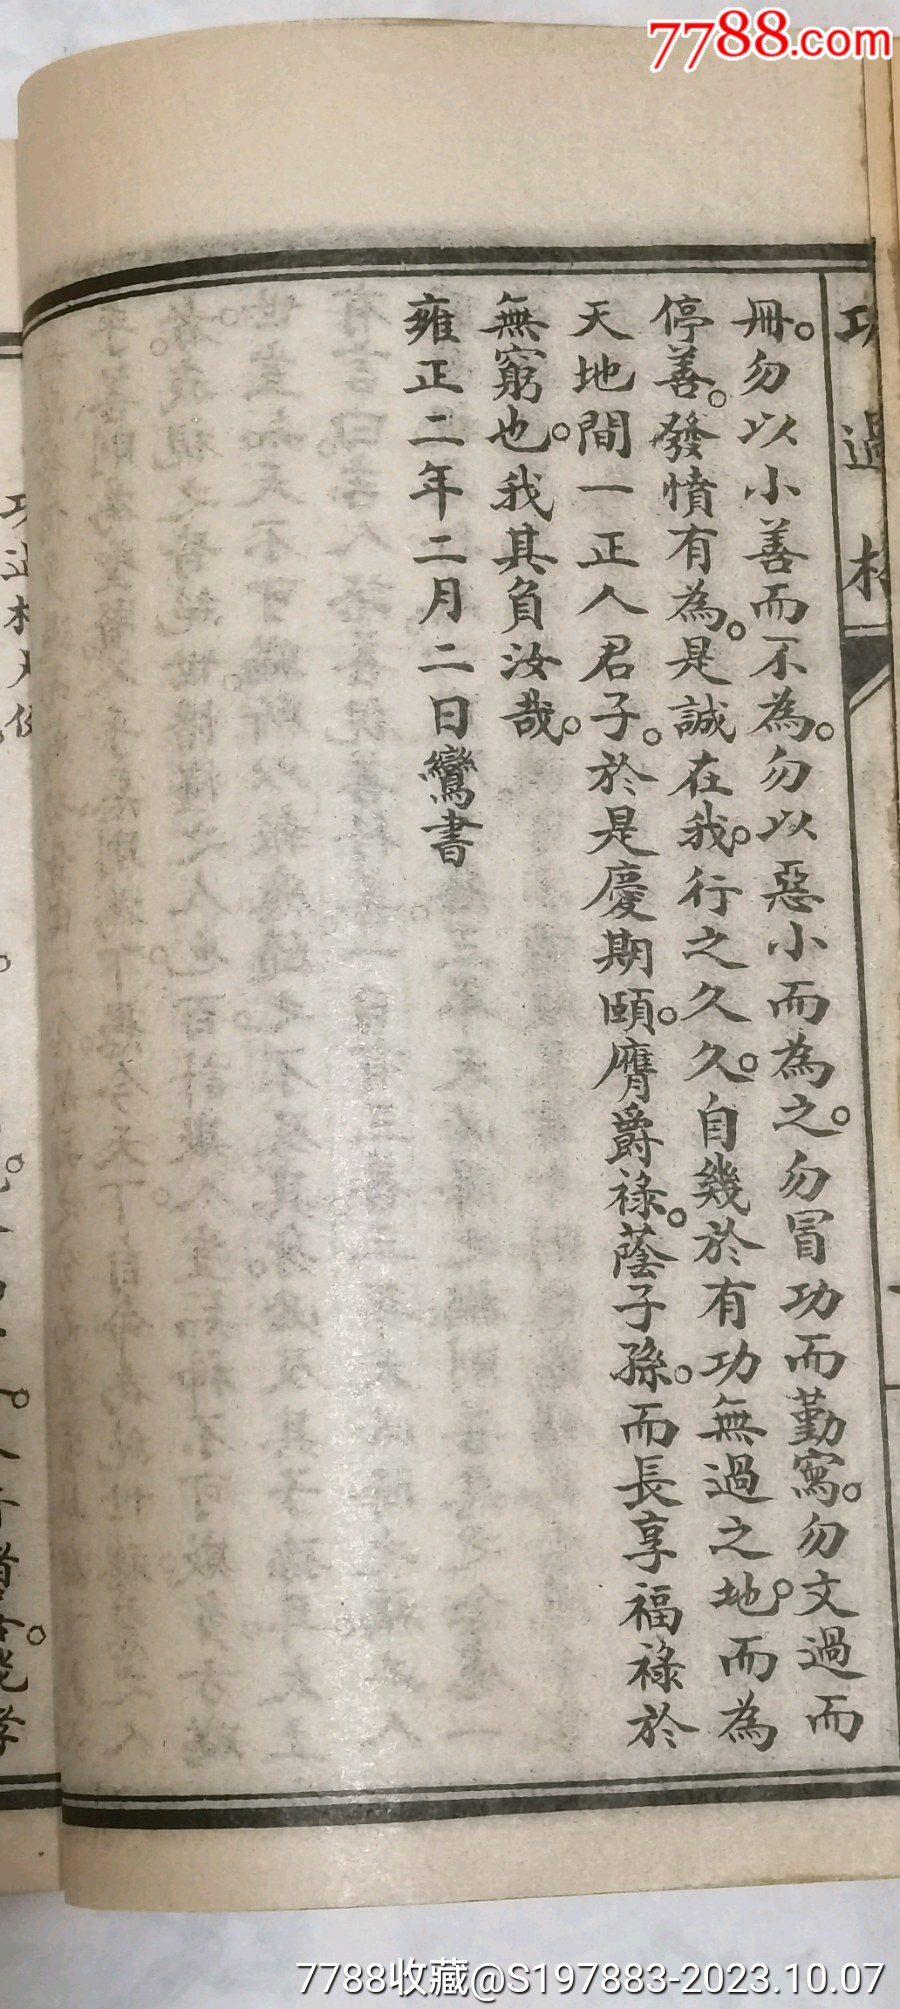 7788.com
功過格
冊。勿以小善而不為。勿以惡小而為之。勿冒功而勤寫。勿文過而
停善。發憤有為。是誠在我。行之久久。自幾於有功無過之地。而為
天地間一正人君子。於是慶期頤。膺爵祿。蔭子孫。而長享福祿於
無窮也。我其負汝哉。
雍正二年二月二日鸞書
7788收藏@S197883-2023.10.07